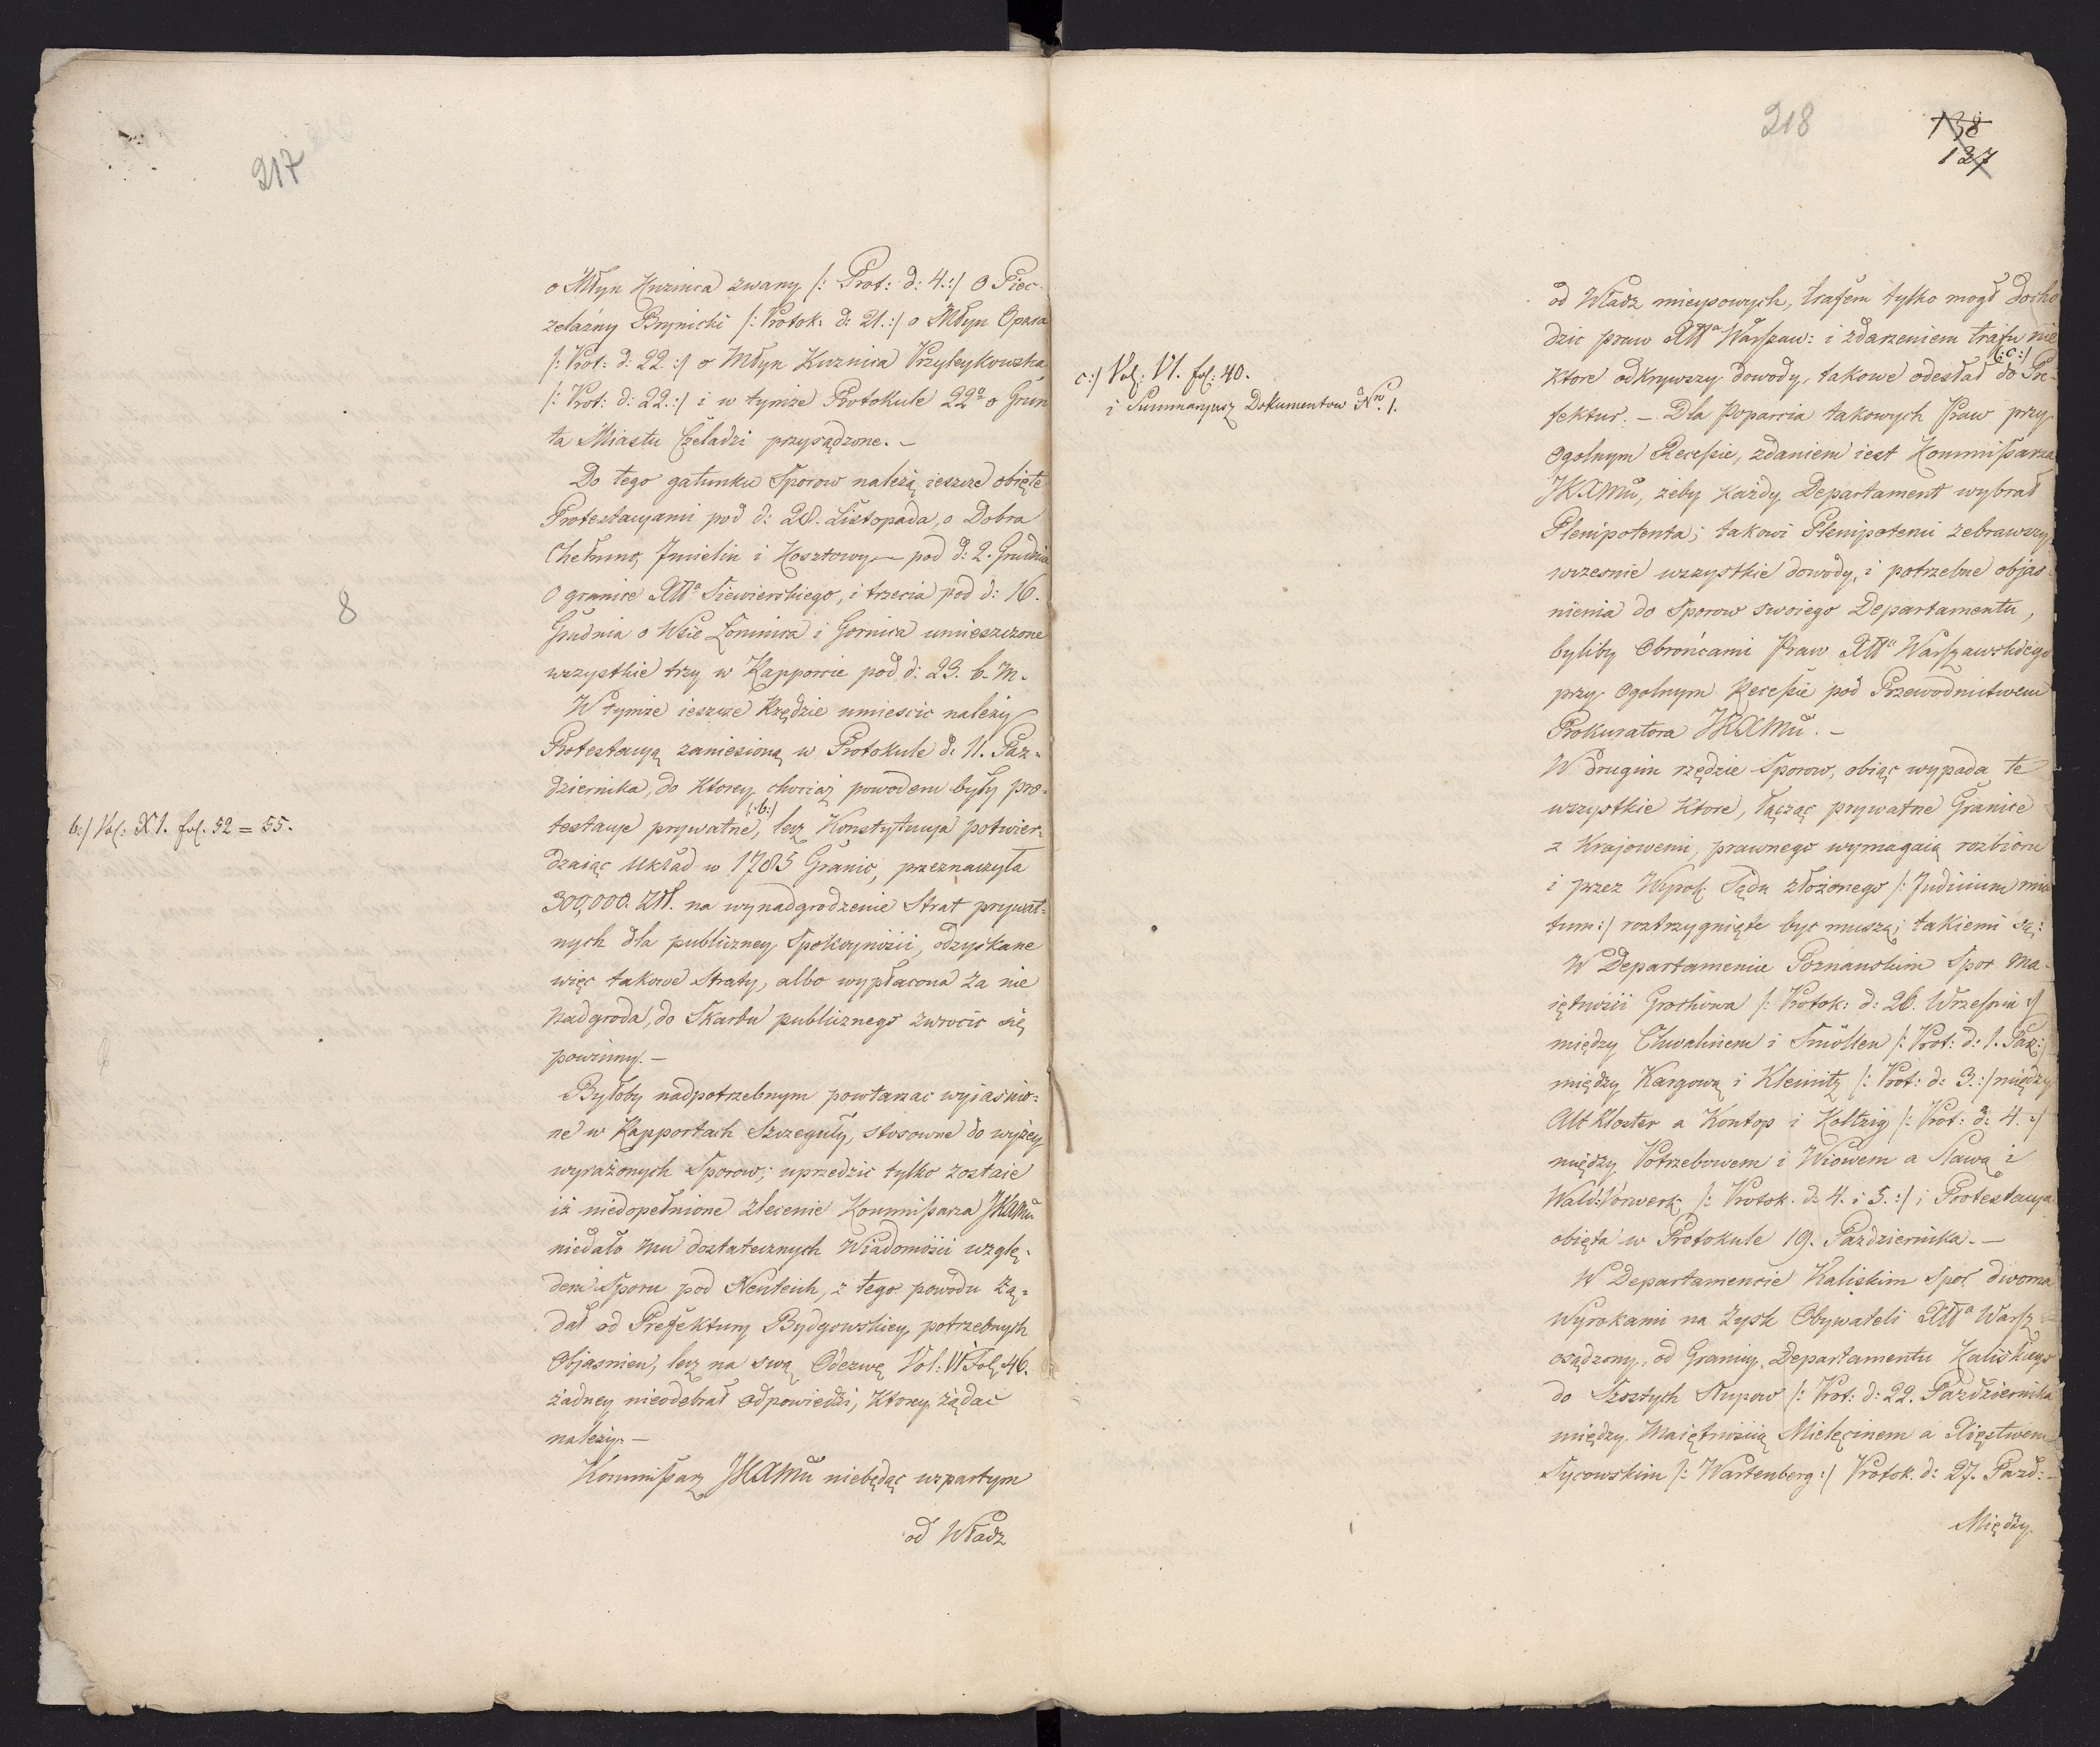 217
o Młyn Kuznica zwany /: Prot: d: 4. :/ o Piec
zelazny Brynicki /: Protok: d: 21. :/ o Młyn Opara
/: Prot: d: 22 :/ o Młyn Kuznica Przyleykowska
/: Prot: d: 22. :/ i w tymże Protokule 22º o Grun
ta Miastu Czeladzi przysądzone. –
Do tego gatunku Sporow należą ieszcze obięte
Protestacyami pod d: 28. Listopada, o Dobra
Chełmno, Jmielin i Kosztowy – pod d: 2. Grudnia
O granice XWa Siewierskiego, i trzecia pod d: 16.
8
Grudnia o Wsie Łomnica i Gornica umieszczone
wszystkie trzy w Rapporcie pod d: 23. b. m.
W tymże ieszcze Rzędzie umiescic należy
Protestacyą zaniesioną w Protokule d: 11. Paz=
dziernika, do Ktorey chociaż powodem były pro=
b:/ Vol: XI. fol. 52 = 55.
testacye prywatne /:b:/, lecz Konstytucya potwier=
dzaiąc Układ w 1785 Granic, przeznaczyła
300,000. Złł. na wynadgrodzenie Strat prywat=
nych dla publiczney Spokoyności, odzyskane
więc takowe Straty, albo wypłacona za nie
Nadgroda, do Skarbu publicznego zwrocic się
powinny. –
Byłoby nadpotrzebnym powtarzac wyiasnio=
ne w Rapportach Szczeguły, stosowne do wyżey
wyrażonych Sporow; uprzedzic tylko zostaie
iż niedopełnione zlecenie Kommissarza JKXMci
niedało mu dostatecznych Wiadomości wzglę=
dem Sporu pod Neuteich, z tego powodu żą=
dał od Prefektury Bydgowskiey, potrzebnych
Objasnien, lecz na swą Odezwę Vol: VI Fol. 46.
żadney nieodebrał Odpowiedzi, Ktorey żądac
należy. –
Kommissarz JKXMci niebędąc wspartym
od Władz
218
138
137
od Władz mieyscowych, trafem tylko mogł docho
dzic praw XWa Warszaw: i zdarzeniem trafu nie
c:/ Vol: VI. fol: 40.
i Summaryusz Dokumentow No. 1.
Ktore odkrywszy dowody, takowe odesłał /:c:/ do Pre-
fektur. – Dla Poparcia takowych Praw przy
Ogolnym Recessie, zdaniem iest Kommissarza
JKXMci, żeby każdy Departament wybrał
Plenipotenta; takowi Plenipotenci zebrawszy
wczesnie wszystkie dowody, i potrzebne objas=
nienia do Sporow swoiego Departamentu,
byliby Obrońcami Praw XWa Warszawskiego
przy Ogolnym Recessie pod Przewodnictwem
Prokuratora JKXMci. –
W drugim rzędzie Sporow, obiąc wypada te
wszystkie Ktore, łącząc prywatne Granice
z Krajowemi, prawnego wymagaią rozbioru
i przez Wyrok Sądu złożonego /: Judicium mix
tum :/ roztrzygnięte byc muszą; takiemi są:
W Departamencie Poznanskim Spor Ma-
iętności Grochowa /: Protok: d: 26. Wrzesnia :/
między Chwalinem i Smöllen /: Prot: d: 1. Paz: :/
między Kargową i Kleinitz /: Prot: d: 3. :/ między
Alt Kloster a Kontop i Koltzig /: Prot: d: 4. :/
między Potrzebowem i Wiowem a Sławą i
Wald=Vorwerk /: Protok. d. 4. i 5. :/ i Protestacya
obięta w Protokule 19. Pazdziernika. –
W Departamencie Kaliskim Spor dwoma
Wyrokami na zysk Obywateli XWa Warsz
osądzony, od Granicy Departamentu Kaliskiego
do Szostych Słupow /: Prot: d: 22. Pazdziernika
między Maiętnością Mielęcinem a Xięstwem
Sycowskim /: Wartenberg :/ Protok. d: 27. Pazd: –
Między